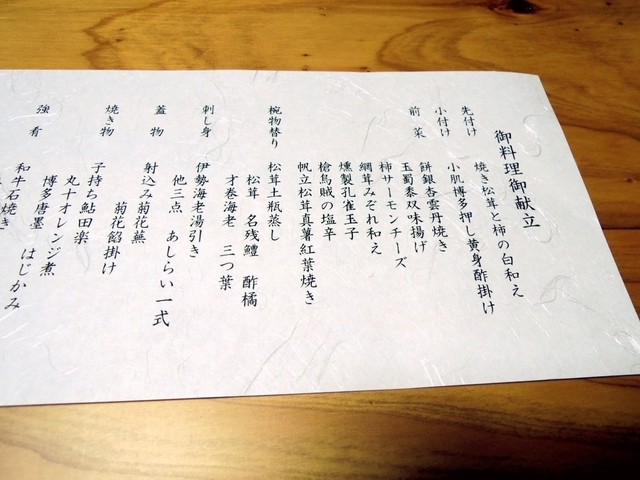 御料理御献立
先付け 焼き松茸と柿の白和え
小付け 小肌博多押し黄身酢掛け
前菜 餅銀杏雲丹焼き
玉蜀黍双味揚げ
柿サーモンチーズ
網茸みぞれ和え
燻製孔雀玉子
槍烏賊の塩辛
帆立松茸真薯紅葉焼き
椀物替り 松茸土瓶蒸し
松茸 名残鱧 酢橘
才巻海老 三つ葉
刺し身 伊勢海老湯引き
他三点 あしらい一式
蓋物 射込み菊花蕪
菊花餡掛け
焼き物 子持ち鮎田楽
丸十オレンジ煮
博多唐墨 はじかみ
強肴 和牛石焼き